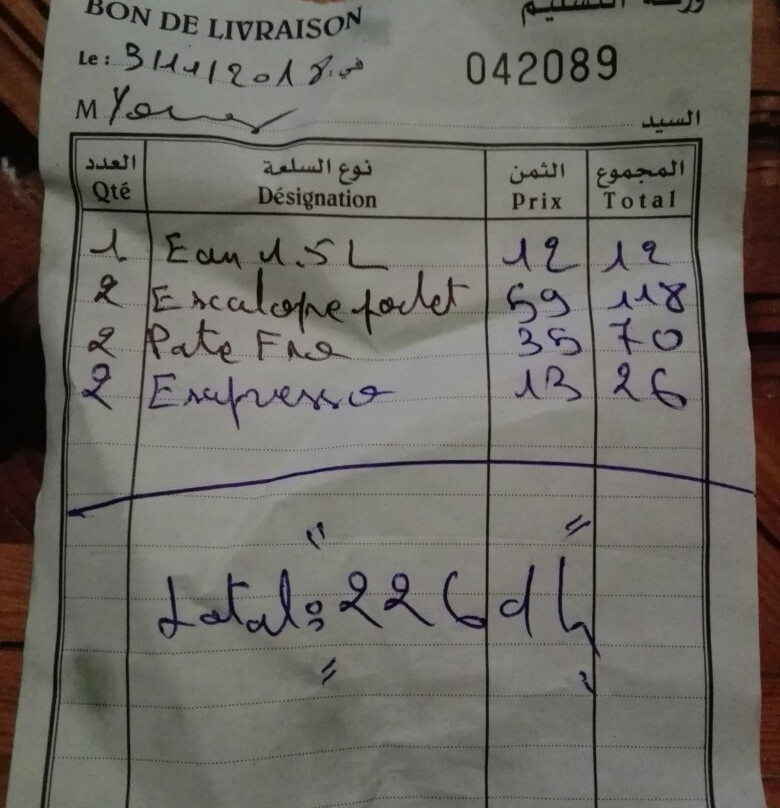 BON DE LIVRAISON ورقة التسليم
Le : 3/11/2018 في.
042089
M Younes السيد
العدد نوع السلعة الثمن المجموع
Qté Désignation Prix Total
1 Eau 1.5L 12 12
2 Escalope poulet 59 118
2 Pate 35 70
2 Expresso 13 26
Total: 226 dh